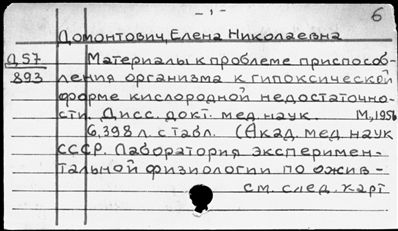 - 1 -
6
Домонтович, Елена Николаевна
Д 57 Материалы к проблеме приспособ-
893 ления организма к гипоксической
форме кислородной недостаточно-
сти. Дисс. докт. мед наук. М, 1956
6, 398 л. с табл. (Акад. мед наук
СССР. Лаборатория эксперимен-
тальной физиологии по ожив-
см. след. карт